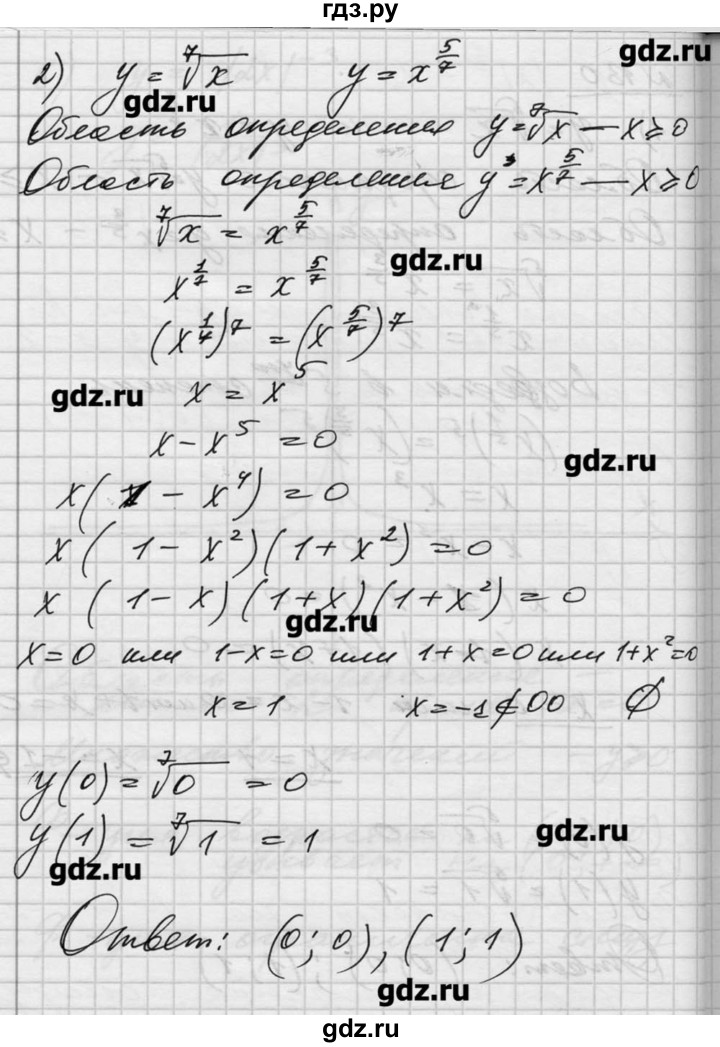 гдз.ру
gdz.ru
2) y = ⁷√x y = x^(5/7)
gdz.ru
Область определения y = ⁷√x — x ⩾ 0
Область определения y = x^(5/7) — x ⩾ 0
⁷√x = x^(5/7)
gdz.ru
x^(1/7) = x^(5/7)
(x^(1/7))^7 = (x^(5/7))^7
gdz.ru
x = x^5
x - x^5 = 0
gdz.ru
x(1 - x^4) = 0
x(1 - x^2)(1 + x^2) = 0
x(1 - x)(1 + x)(1 + x^2) = 0
gdz.ru
x = 0 или 1-x=0 или 1+x=0 или 1+x^2=0
x = 1 x = -1 ∉ ОО ∅
y(0) = ⁷√0 = 0
y(1) = ⁷√1 = 1
gdz.ru
gdz.ru
Ответ: (0; 0), (1; 1)
gdz.ru
gdz.ru